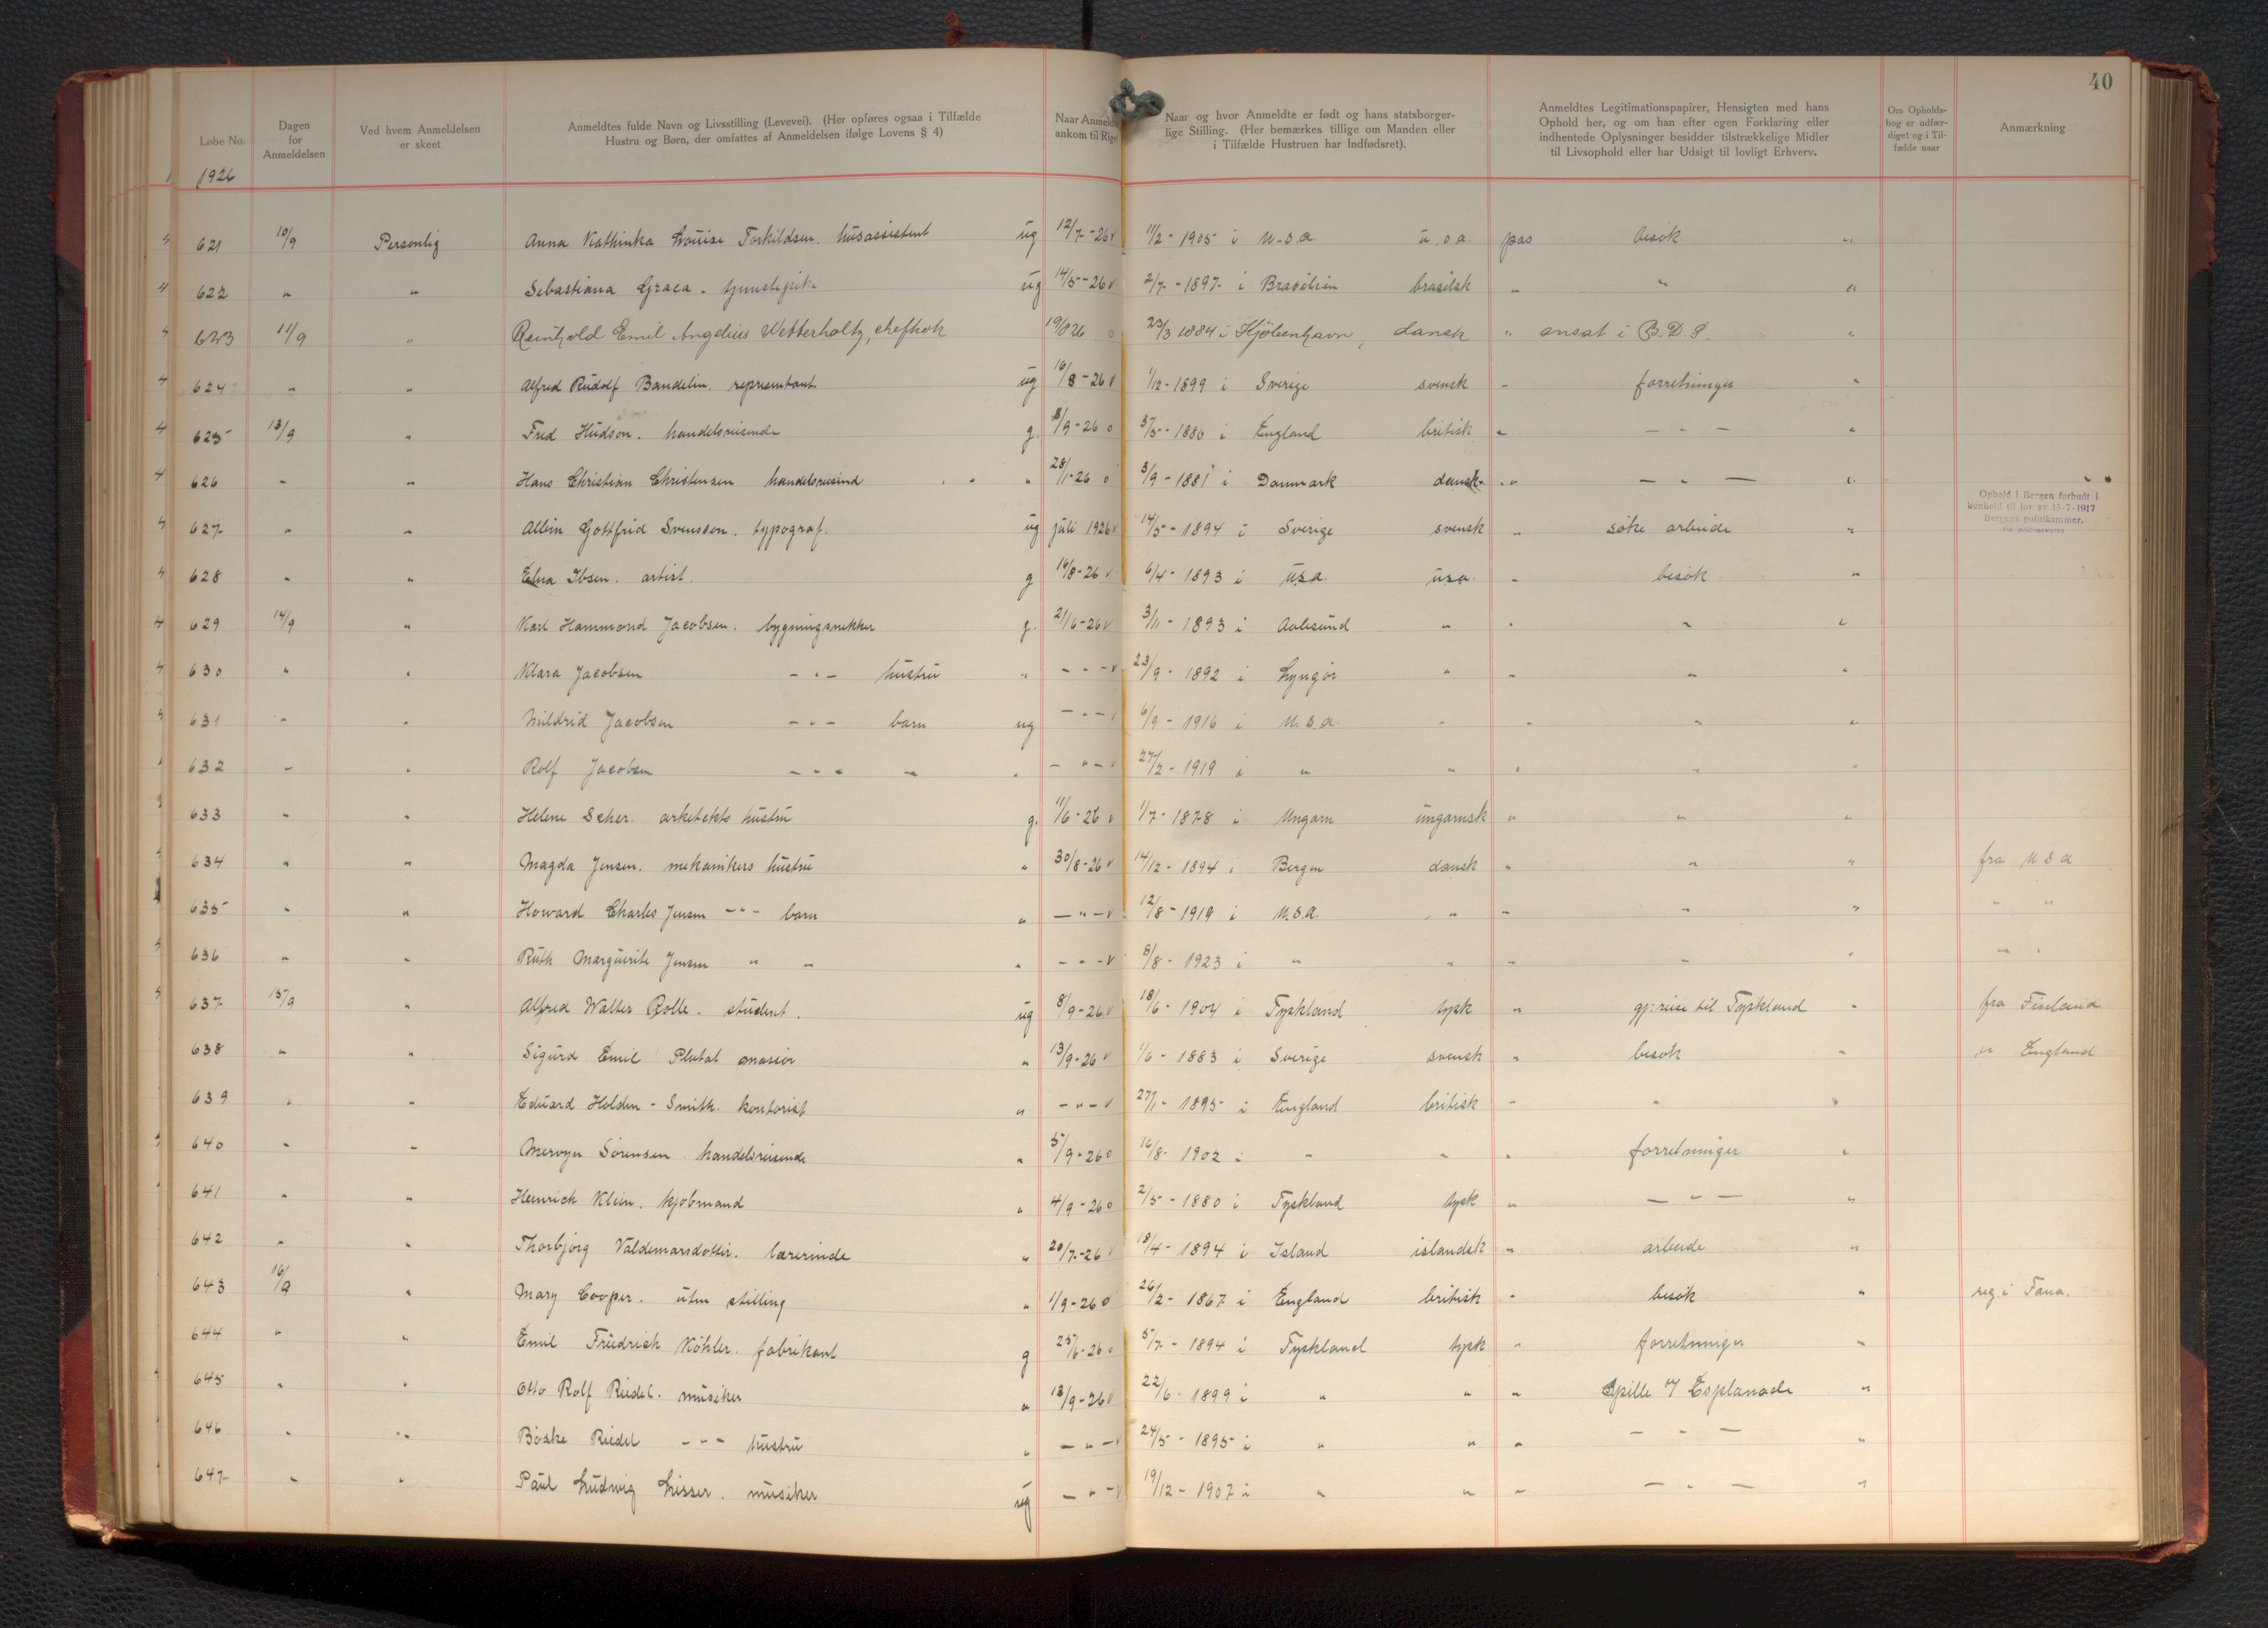 40
Løbe No.
Dagen for Anmeldelsen
Ved hvem Anmeldelsen er skeet
Anmeldtes fulde Navn og Livsstilling (Levevei). (Her opføres ogsaa i Tilfælde Hustru og Børn, der omfattes af Anmeldelsen ifølge Lovens § 4)
Naar Anmeldte ankom til Riget
Naar og hvor Anmeldte er født og hans statsborgerlige Stilling. (Her bemærkes tillige om Manden eller i Tilfælde Hustruen har Indfødsret).
Anmeldtes Legitimationspapirer, Hensigten med hans Ophold her, og om han efter egen Forklaring eller indhentede Oplysninger besidder tilstrækkelige Midler til Livsophold eller har Udsigt til lovligt Erhverv.
Om Opholdsbog er udfærdiget og i Tilfælde naar
Anmærkning
1926
621 10/9 Personlig Anna Kathinka Louise Torkildsen. husassistent ug 12/7-26 v 11/2-1905 i U.S.A. u.s.a. pas besøk "
622 " " Sebastiana Graca. ug 14/5-26 v 2/7-1897 i Brasilien brasilsk " " "
623 11/9 " Reinhold Emil Angelius Wetterholtz, chefkok 19/8 26 o 23/3 1884 i Kjöbenhavn, dansk " ansat i B.D.S. "
624 " " Alfred Rudolf Bandelin. representant. ug 16/8-26 v 1/12-1899 i Sverige svensk " forretninger "
625 13/9 " Fred Hudson. handelsreisende g. 8/9-26 o 3/5-1880 i England britisk " - " - "
626 " " Hans Christian Christensen handelsreisend " 28/1-26 o 3/9-1881 i Danmark dansk " - " - "
627 " " Albin Gottfrid Svensson. typograf. ug juli 1926 v 14/5-1894 i Sverige svensk " söke arbeide "
Ophold i Bergen forbudt i henhold til lov av 13-7-1917
Bergens politikammer.
628 " " Edna Ibsen. artist. g 14/8-26 v 6/4-1893 i usa. usa. " besøk "
629 14/9 " Karl Hammond Jacobsen. bygningsnekker g. 21/6-26 v 3/11-1893 i Aalesund " " " "
630 " " Klara Jacobsen - " - hustru " - " - v 23/9-1892 i Lyngör " " " "
631 " " Mildrid Jacobsen - " - barn ug - " - v 6/9-1916 i U.S.A. " " " "
632 " " Rolf Jacobsen - " - " " - " - v 27/2-1919 i " " " " "
633 " " Helene Scher arkitekts hustru g. 11/6-26 v 1/7-1878 i Ungarn ungarnsk " " "
634 " " Magda Jensen. mekanikers hustru " 30/8-26 v 14/12-1894 i Bergen dansk " " " fra U S A
635 " " Howard Charles Jensen - " - barn " - " - v 12/8-1919 i U.S.A. " " " " " "
636 " " Ruth Marguerite Jensen " " " - " - v 8/8-1923 i " " " " " " "
637 15/9 " Alfred Walter Rolle. student. ug 8/9-26 v 18/6-1904 i Tyskland tysk " gj:reise til Tyskland " fra Finland
638 " " Sigurd Emil Plutat masör " 13/9-26 v 1/6-1883 i Sverige svensk " besök " " England
639 " " Eduard Holden-Smith. kontorist " - " - v 27/1-1895 i England britisk " " "
640 " " Mervyn Sörensen. handelsreisende " 5/9-26 o 16/8-1902 i " " " forretninger "
641 " " Heinrich Klein. kjöbmand " 4/9-26 o 2/5-1880 i Tyskland tysk " - " - "
642 " " Thorbjörg Valdemarsdottir. lærerinde " 20/7-26 v 18/4-1894 i Island islandsk " arbeide "
643 16/9 " Mary Cooper. uten stilling " 1/9-26 o 26/2-1867 i England britisk " besök " reg. i Fana.
644 " " Emil Friedrich Köhler. fabrikant g 25/6-26 o 5/7-1894 i Tyskland tysk " forretninger "
645 " " Otto Rolf Riedel. musiker " 13/9-26 v 22/6-1899 i " " " Spille v/ Esplanade "
646 " " Böske Riedel - " - hustru " - " - v 24/5-1895 i " " " - " - "
647 " " Paul Ludwig Lisser. musiker ug - " - v 19/12-1907 i " " " - " - "